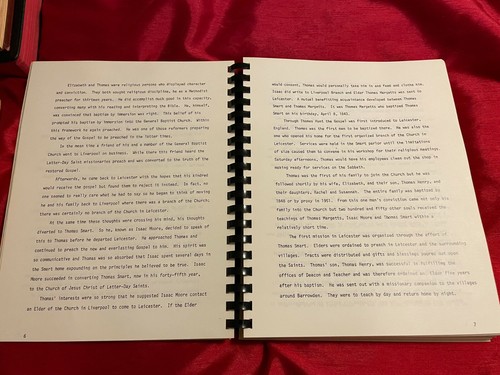 Elizabeth and Thomas were religious persons who displayed character
and conviction. They both sought religious discipline, he as a Methodist
preacher for thirteen years. He did accomplish much good in this capacity,
concerning many with his reading and interpreting the Bible. He, himself,
was convinced that baptism by immersion was right. This belief of his
prompted his baptism by immersion into the General Baptist Church. Within
this framework he again preached. He was one of those reformers preparing
the way of the Gospel to be preached in the latter times.
In the mean time a friend of his and a member of the General Baptist
Church went to Liverpool on business. While there this friend heard the
Latter-Day Saint missionaries preach and was converted to the truth of the
restored Gospel.
Afterwards, he came back to Leicester with the hopes that his kindred
would receive the Gospel but found them to reject it instead. In fact, no
one seemed to really care what he had to say so he began to think of moving
he and his family back to Liverpool where there was a branch of the Church;
there was certainly no branch of the Church in Leicester.
At the same time these thoughts were crossing his mind, his thoughts
diverted to Thomas Smart. So he, known as Isaac Moore, decided to speak of
this to Thomas before he departed Leicester. He approached Thomas and
continued to preach the new and everlasting Gospel to him. His spirit was
so communicative and Thomas was so absorbed that Isaac spent several days in
the Smart home expounding on the principles he believed to be true. Isaac
Moore succeeded in converting Thomas Smart, now in his forty-fifth year,
to the Church of Jesus Christ of Latter-Day Saints.
Thomas' interests were so strong that he suggested Isaac Moore contact
an Elder of the Church in Liverpool to come to Leicester. If the Elder
6
would consent, Thomas would personally take him in and feed and clothe him.
Isaac did write to Liverpool Branch and Elder Thomas Margetts was sent to
Leicester. A mutual benefiting acquaintance developed between Thomas
Smart and Thomas Margetts. It was Thomas Margetts who baptized Thomas
Smart on his birthday, April 9,
Through Thomas Smart the Gospel was first introduced to Leicester,
England. Thomas was the first one to be baptized there. He was also the
one who opened his home for the first organized branch of the Church in
Leicester. Services were held in the Smart parlor until the limitations
of size caused them to convene in his workshop for their religious meetings.
Saturday afternoons, Thomas would have his employees clean out the shop in
making ready for services on the Sabbath.
Thomas was the first of his family to join the Church but he was
followed shortly by his wife, Elizabeth, and their son, Thomas Henry, and
their daughters, Rachel and Susannah. The entire family was baptized by
or by proxy in From this one man's conviction came not only his
family into the Church but two hundred and fifty other souls received the
teachings of Thomas Margetts, Isaac Moore and Thomas Smart within a
relatively short time.
The first mission in Leicester was organized through the effort of
Thomas Smart. Elders were ordained to preach in Leicester and the surrounding
villages. Tracts were distributed and gifts and blessings poured out upon
the Saints. Thomas' son, Thomas Henry, was successful in fulfilling the
offices of Deacon and Teacher and was therefore ordained an Elder five years
after his baptism. He was sent out with a missionary companion to the villages
around Barrowden. They were to teach by day and return home by night,
7